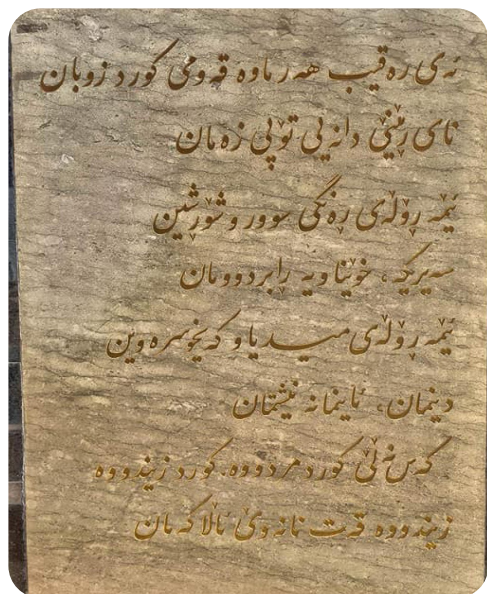 ئەی رەقیب هەر ماوە قەومی کورد زوبان
نای رمێنێ دانەیی تۆپی زەمان
ئێمە ڕۆڵەی ڕەنگی سوور و شۆڕشین
سەیرکە، خوێناویە ڕابردوومان
ئێمە ڕۆڵەی میدیا و کەیخوسرەوین
دینمان، ئاینمانە نیشتمان
کەس نەڵێ کورد مردووە، کورد زیندووە
زیندووە قەت نانەوێ ئاڵاکەمان